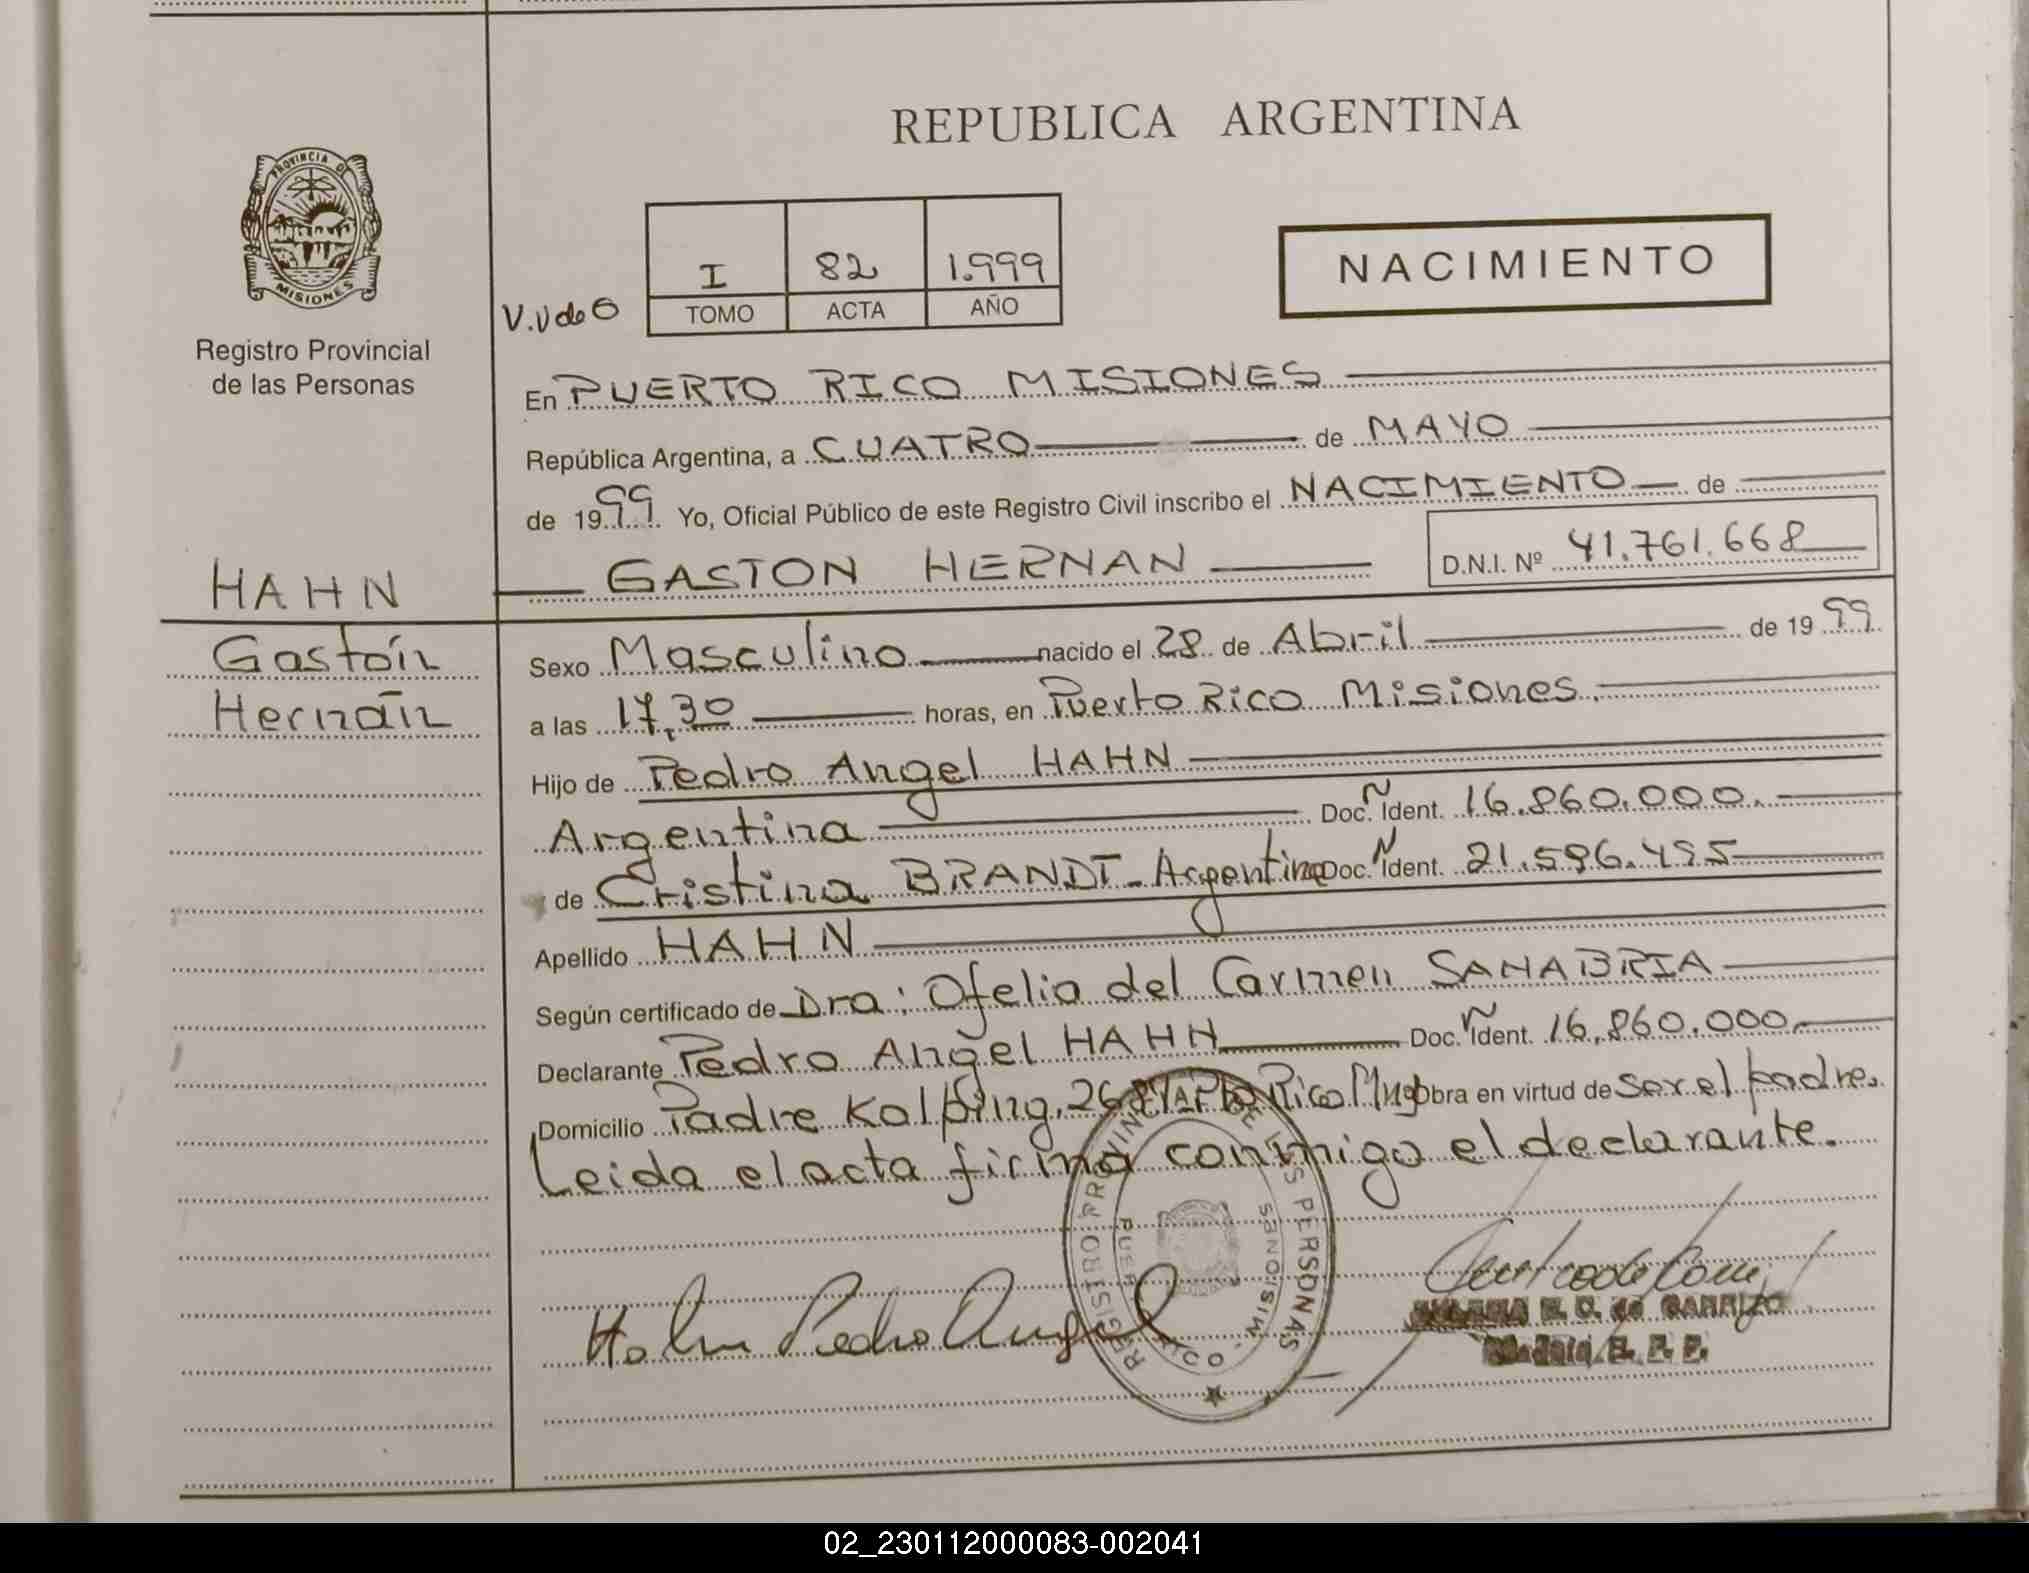 REPUBLICA ARGENTINA
PROVINCIA DE
MISIONES
Registro Provincial
de las Personas
I 82 1.999
TOMO ACTA AÑO
NACIMIENTO
En PUERTO RICO MISIONES
República Argentina, a CUATRO de MAYO
de 1999 Yo, Oficial Público de este Registro Civil inscribo el NACIMIENTO de
GASTON HERNAN D.N.I. Nº 41.761.668
HAHN
Gastón
Hernán
Sexo Masculino nacido el 28 de Abril de 1999
a las 17,30 horas, en Puerto Rico Misiones.
Hijo de Pedro Angel HAHN
Argentina Doc. N Ident. 16.860.000.
de Cristina BRANDT - Argentina Doc. N Ident. 21.596.495
Apellido HAHN
Según certificado de Dra: Ofelia del Carmen SANABRIA
Declarante Pedro Angel HAHN Doc. N Ident. 16.860.000.
Domicilio Padre Kolping, 268 Pto Rico Obra en virtud de ser el padre.
Leida el acta firma conmigo el declarante.
REGISTRO PROVINCIAL DE LAS PERSONAS
MISIONES
Hahn Pedro Angel
02_230112000083-002041